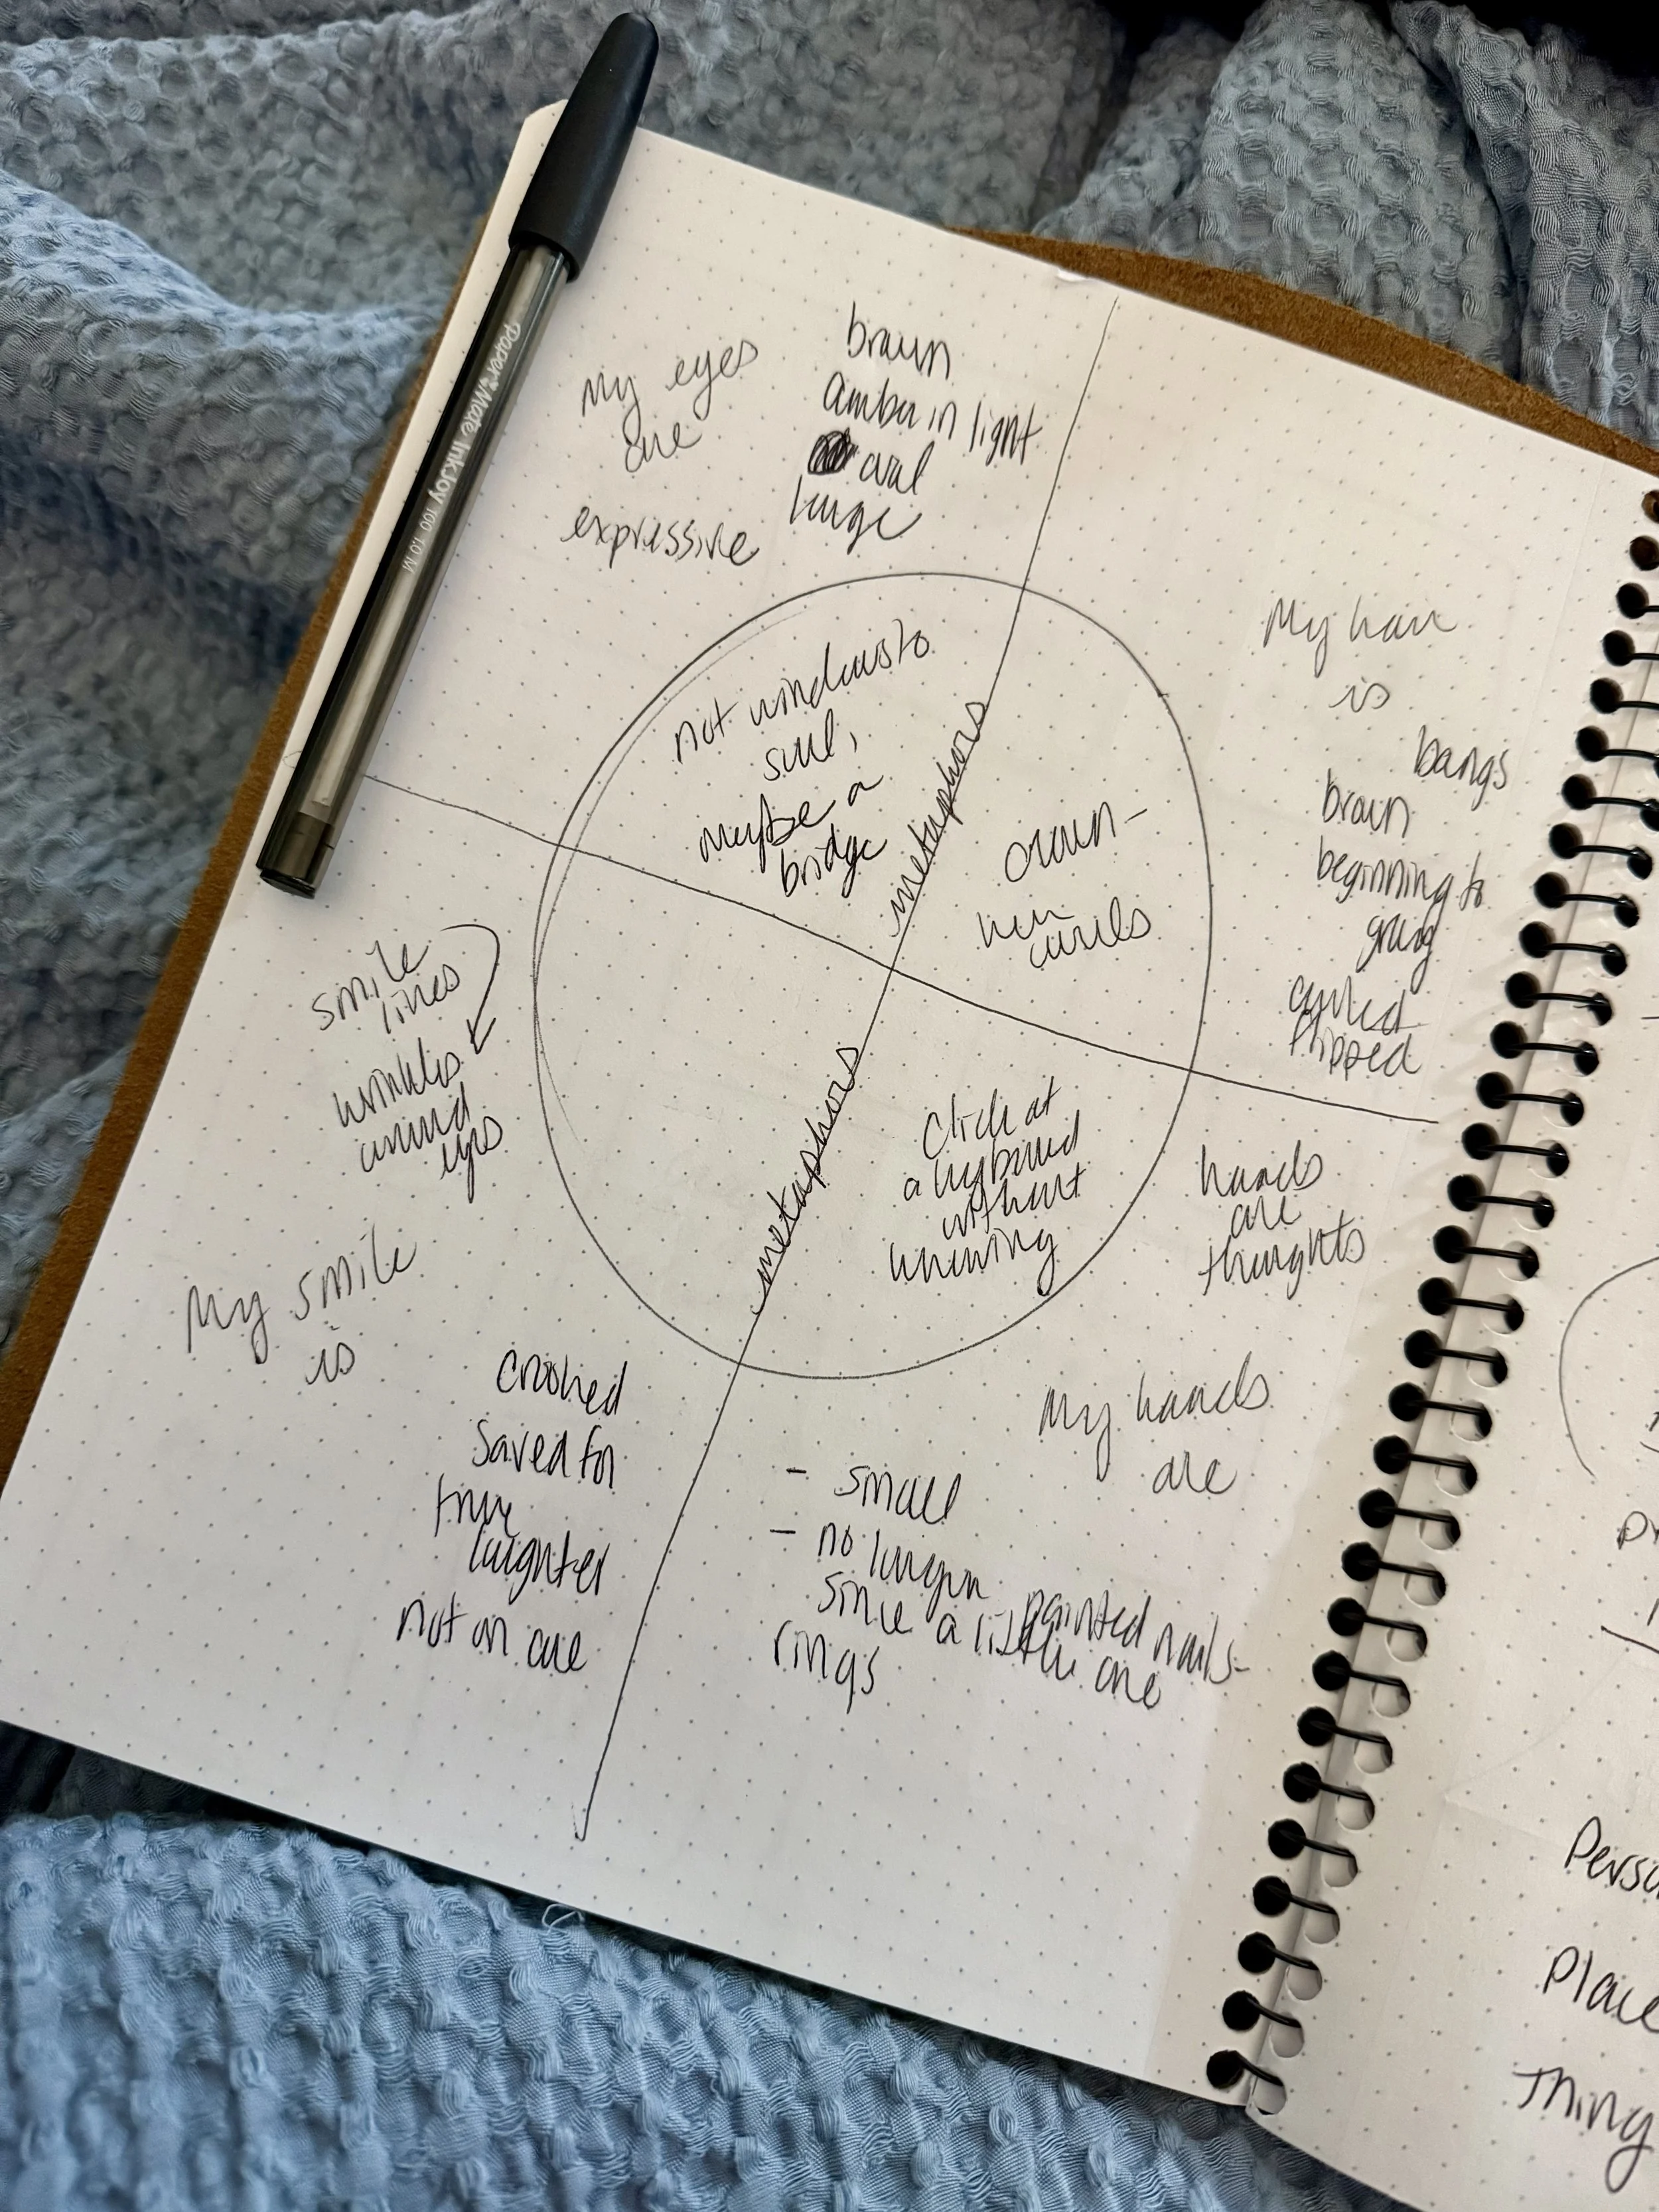 PaperMate InkJoy 100 1.0 M
My eyes
are
expressive
brown
amber in light
oval
large
not windows to
soul,
maybe a
bridge
metaphors
crown-
her
curls
My hair
is
bangs
brown
beginning to
gray
curled
flipped
smile
lines
wrinkles
around
eyes
My smile
is
crooked
saved for
true
laughter
not on cue
metaphors
Click at
a keyboard
without
knowing
hands
are
thoughts
My hands
are
- small
- no longer
since a little one
painted nails-
rings
Place
Thing